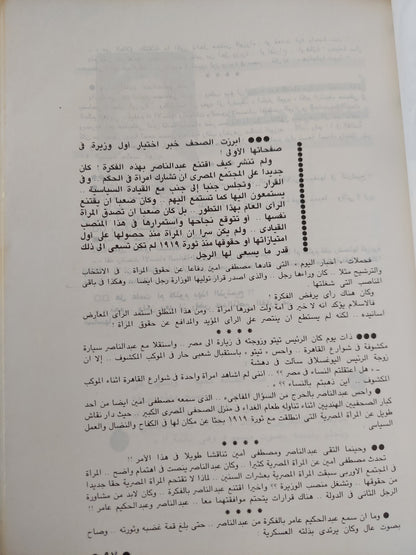 ●●● أبرزت الصحف خبر اختيار أول وزيرة في
صفحاتها الأولى !
ولم تنشر كيف اقتنع عبدالناصر بهذه الفكرة ! كان
جديدا على المجتمع المصرى ان تشارك امرأة في الحكم .. وفي
القرار .. وتجلس جنبا إلى جنب مع القيادة السياسية
يستمعون اليها كما تستمع اليهم .. وكان صعبا ان يقتنع
الرأى العام بهذا التطور .. بل كان صعبا ان تصدق المرأة
نفسها .. أو تتوقع نجاحها واستمرارها في هذا المنصب
القيادى .. ولم يكن سرا ان المرأة منذ حصولها على أول
امتيازاتها أو حقوقها منذ ثورة ١٩١٩ لم تكن تسعى الى ذلك
قدر ما يسعى لها الرجل
فحملات « أخبار اليوم » التى قادها مصطفى أمين دفاعا عن حقوق المرأة .. في الانتخاب
والترشيح مثلا .. كان وراءها رجل .. والذى أصدر قرار توليها الوزارة رجل ايضا .. وهكذا في باقى
المناصب التى شغلتها .
وكان هناك رأى يرفض الفكرة !
فالاسلام يؤكد انه لا خير في أمة ولت أمورها امرأة .. ومن هذا المنطلق استمد الرأى المعارض
اسانيده .. لكنه لم يستطع ان ينتصر على الرأى المؤيد والمدافع عن حقوق المرأة !
●●● ذات يوم كان الرئيس تيتو وزوجته في زيارة الى مصر .. واستقلا مع عبدالناصر سيارة
مكشوفة في شوارع القاهرة .. وأحس ، تيتو ، باستقبال شعبى حار في الموكب المكشوف .. إلا أن
زوجة الرئيس اليوغسلافى سألت في دهشة
ـ هل اعتقلتم النساء في مصر ؟؟ .. اننى لم اشاهد امرأة واحدة في شوارع القاهرة اثناء الموكب
المكشوف .. اين ذهبتم بالنساء ؟؟ .
● واحس عبدالناصر بالحرج من السؤال المفاجىء .. الذى سمعه مصطفى أمين ايضا من احد
كبار الصحفيين الهنديين اثناء تناوله طعام الغداء في منزل الصحفى المصرى الكبير .. حيث دار نقاش
طويل عن المرأة المصرية التى انطلقت مع ثورة ١٩١٩ بحثا عن مكان لها في الكفاح والنضال والعمل
السياسى
● وحينما التقى عبدالناصر ومصطفى أمين تناقشا طويلا في هذا الأمر !!
تحدث مصطفى أمين عن المرأة المصرية كثيرا .. وكان عبدالناصر ينصت في اهتمام واضح .. المرأة
في المجتمع الأوربى سبقت المرأة المصرية بعشرات السنين .. لماذا لا نفتح للمرأة المصرية حقا جديدا
من حقوقها .. وتشغل منصب الوزيرة ؟؟ واخيرا اقتنع عبدالناصر بالفكرة .. وكان لابد من مشاورة
الرجل الثانى في الدولة .. هناك قرارات يتحتم موافقتهما معا .. عبدالناصر .. وعبدالحكيم عامر !!
● وما ان سمع عبدالحكيم عامر بالفكرة من عبدالناصر .. حتى بلغ قمة غضبه وثورته .. وصاح
بصوت عال وكان يرتدى بذلته العسكرية :